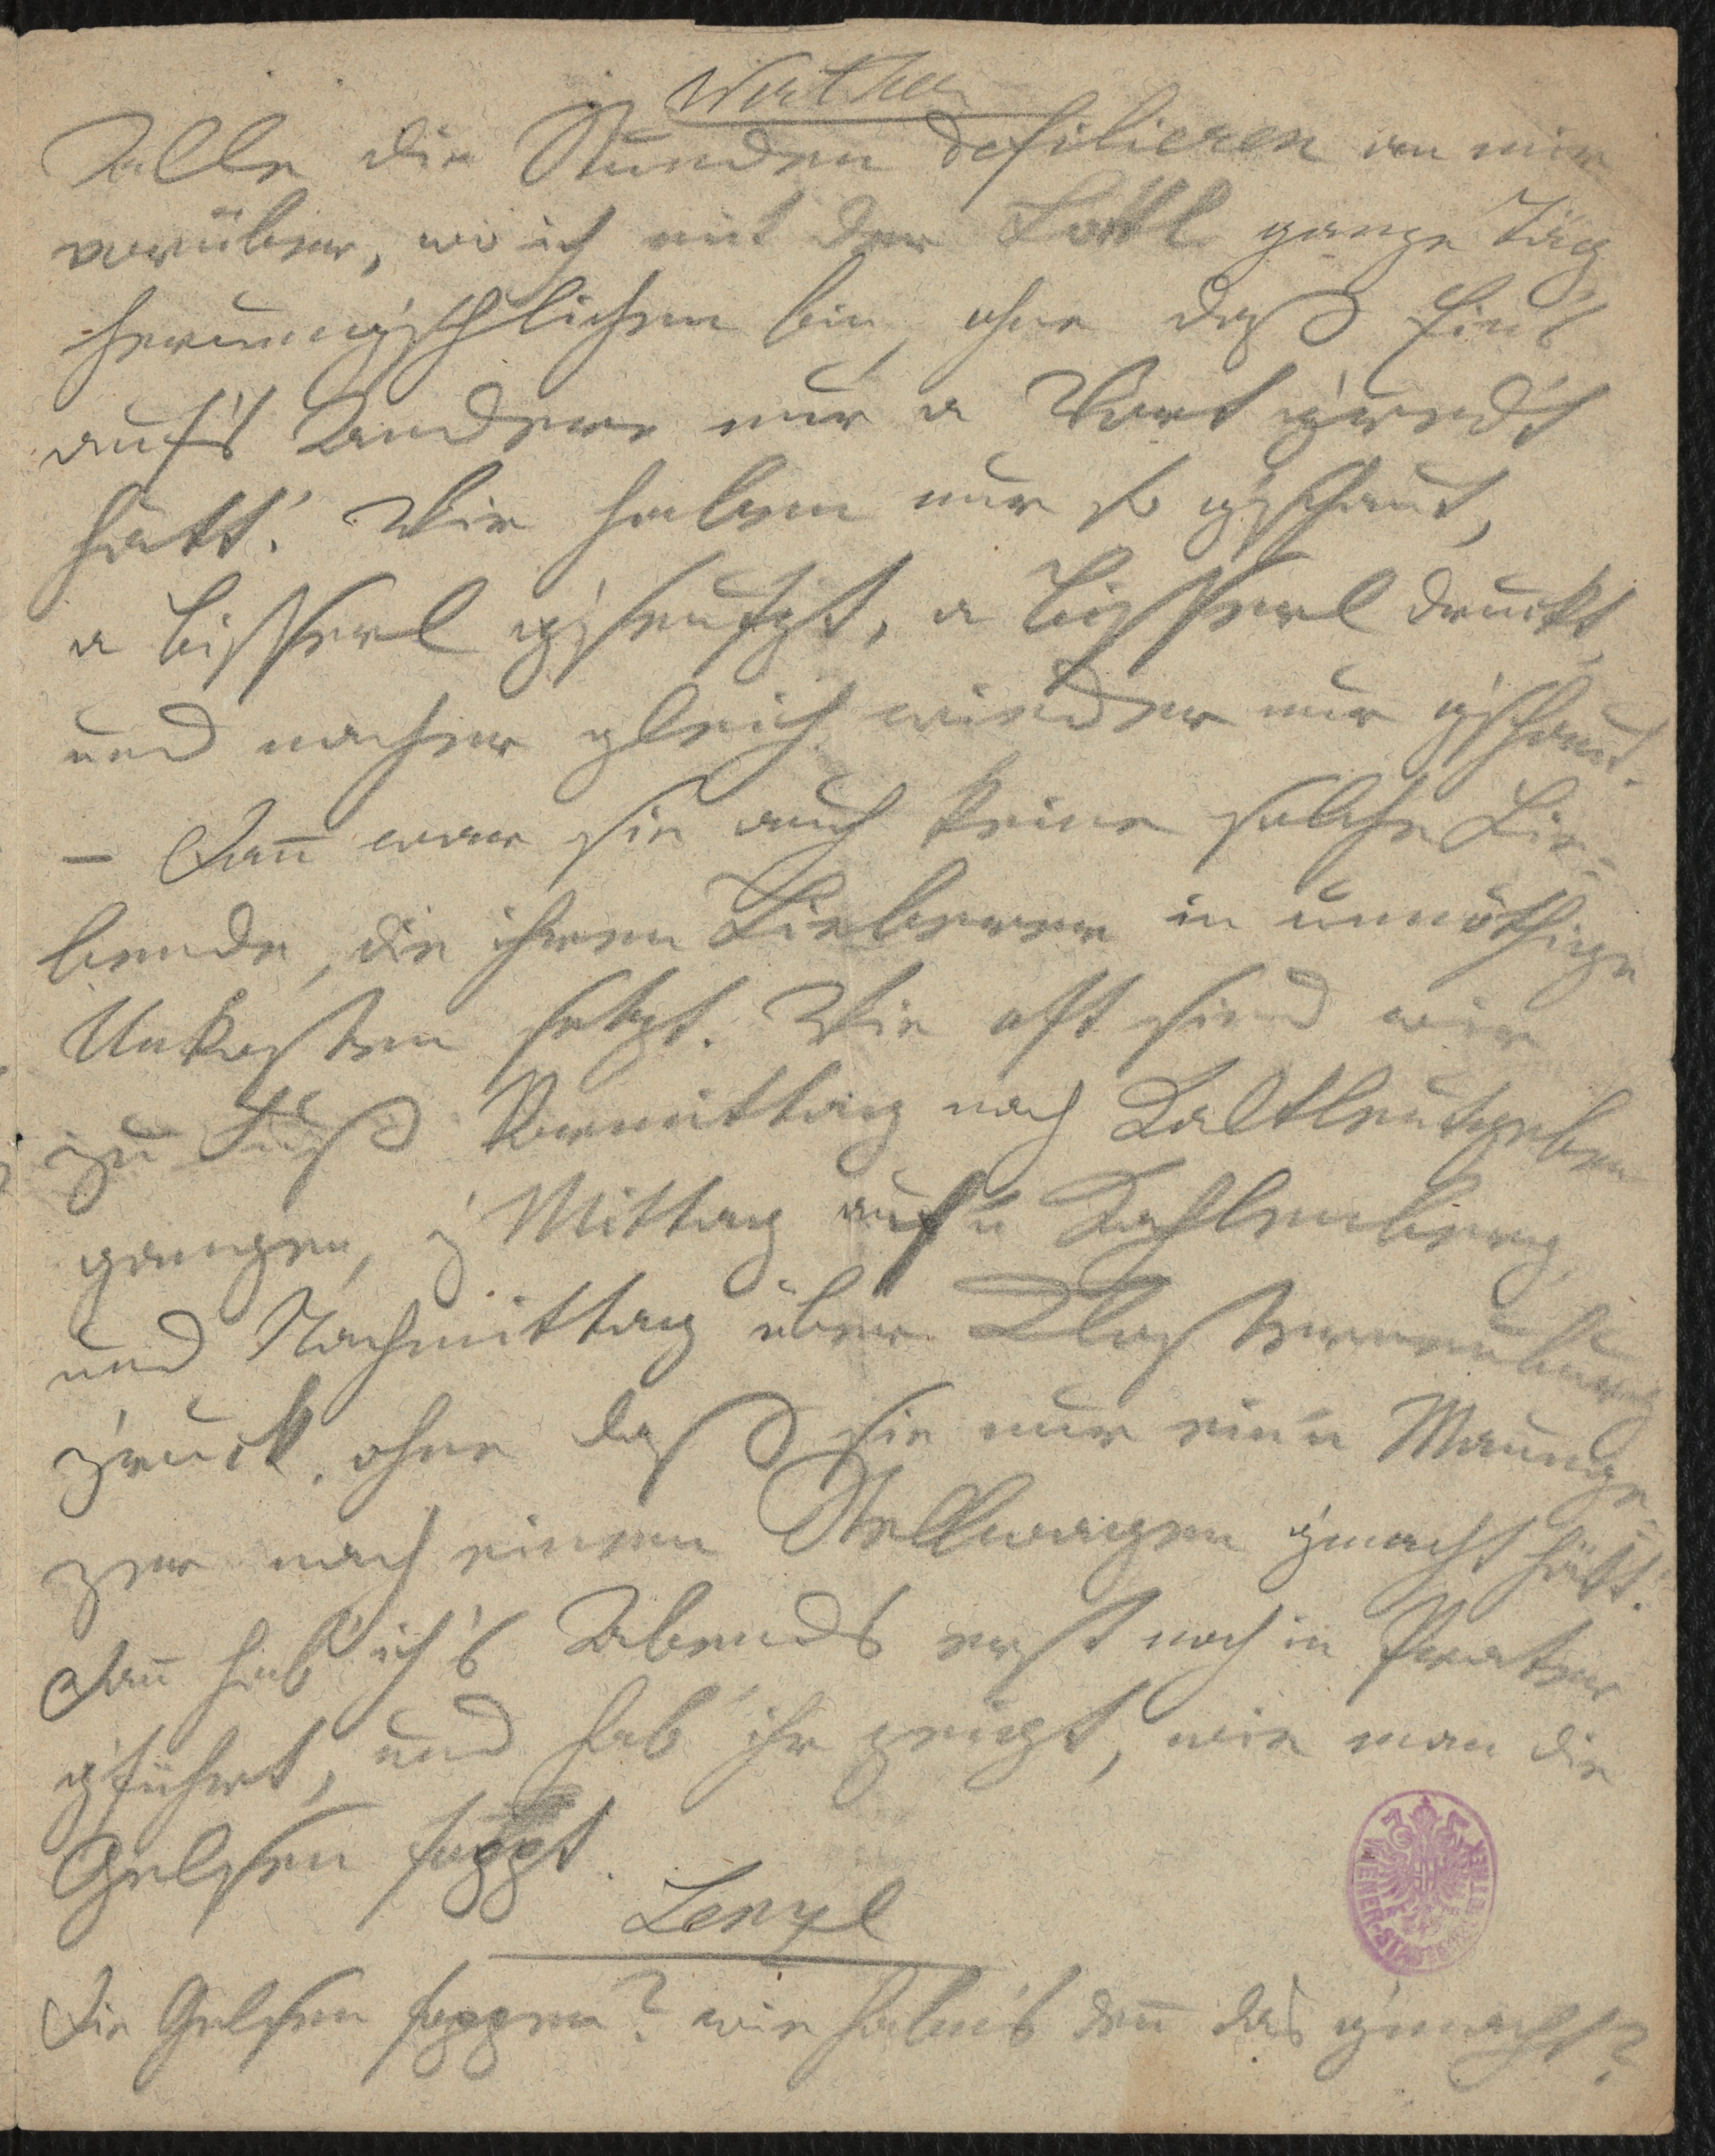 Werther
Alle die Stunden defilieren an mir
vorüber, wo ich mit der Lottl ganze Täg
herumg'schlichen bin, ohne daß Eins
auf's Andere nur a Wort g'redt
hätt'. Wir haben nur so g'schaut,
a bisserl g'seufzt, a bisserl druckt,
und nacher gleich wieder nur g'schaut.
– Dan̄ war sie auch keine solche Lie-
bende, die ihren Lieberer in unnöthige
Unkosten setzt. Wie oft sind wir
zu Fuß Vormittag nach Kaltleutgeben
gangen, z' Mittag auf'n Kahlenberg,
und Nachmittag über Klosterneuburg
z'ruck, ohne daß sie nur ein'n Maunze-
zer nach einem Stellwagen g'macht hätt'.
Dan̄ hab' ich's Abends erst noch in Prater
g'führt, und hab' ihr zeigt, wie man die
Gelsen foppt.
Lenzl
Die Gelsen foppen? wie haben's den̄ das g'macht?
WIENER-STADTBIBLIOTHEK